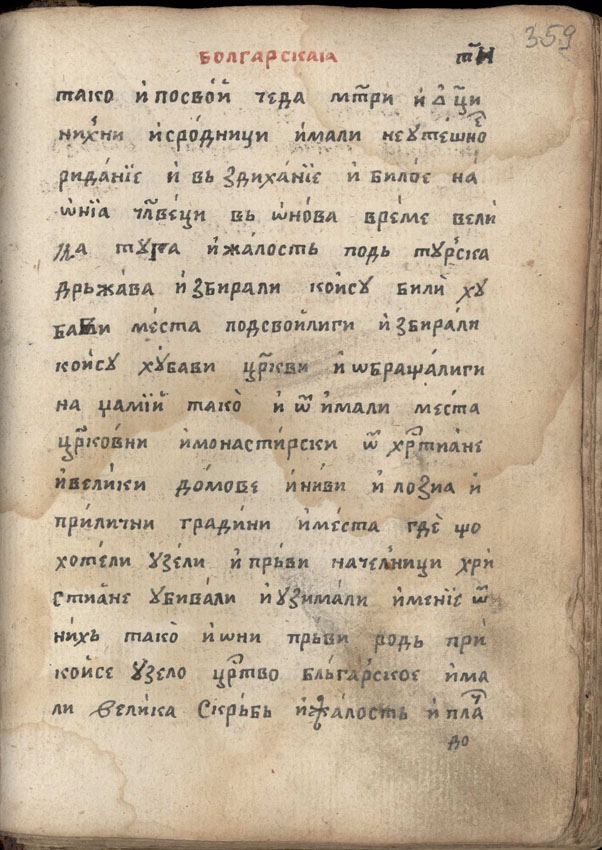 359
БОЛГАРСКАІА тⷩ҇И
тако и҆ посво́й чеда мт҃ри и҆ дщ҃и
нихни и҆сро́дници и҆мали неуте́шно
рида́нїе и҆ въ здиха́нїе и҆ било́е на́
ѡ҆нїа чл҃веци въ ѡ҆но́ва вре́ме вели́
ка туга и҆жа́лость подь ту́рска
дрьжа́ва и҆збирали кои́су били̏ ху
бави ме́ста подсвои́лиги и҆збира́ли
кои́су ху́бави цр҃кви и҆ ѡ҆браща́лиги
на џами́й тако̀ и҆ ѿ и҆мали ме́ста
цр҃ко́вни и҆монасти́рски ѿ хрⷭ҇тиа́не
и҆вели́ки до́мове и҆ни́ви и҆ лозиа и҆
прили́чни гради́ни и҆ме́ста гдѐ що
хоте́ли узе́ли и҆ прь́ви наче́лници хри
стиа́не убива́ли и҆ узима́ли и҆ме́нїе ѿ
ни́хь тако̀ и҆ѡни прьви родь при́
кои́се узе́ло црⷭ҇тво бльга́рское и҆ма
ли вели́ка скрь́бь и҆жа́лость и҆ пла́ч
до